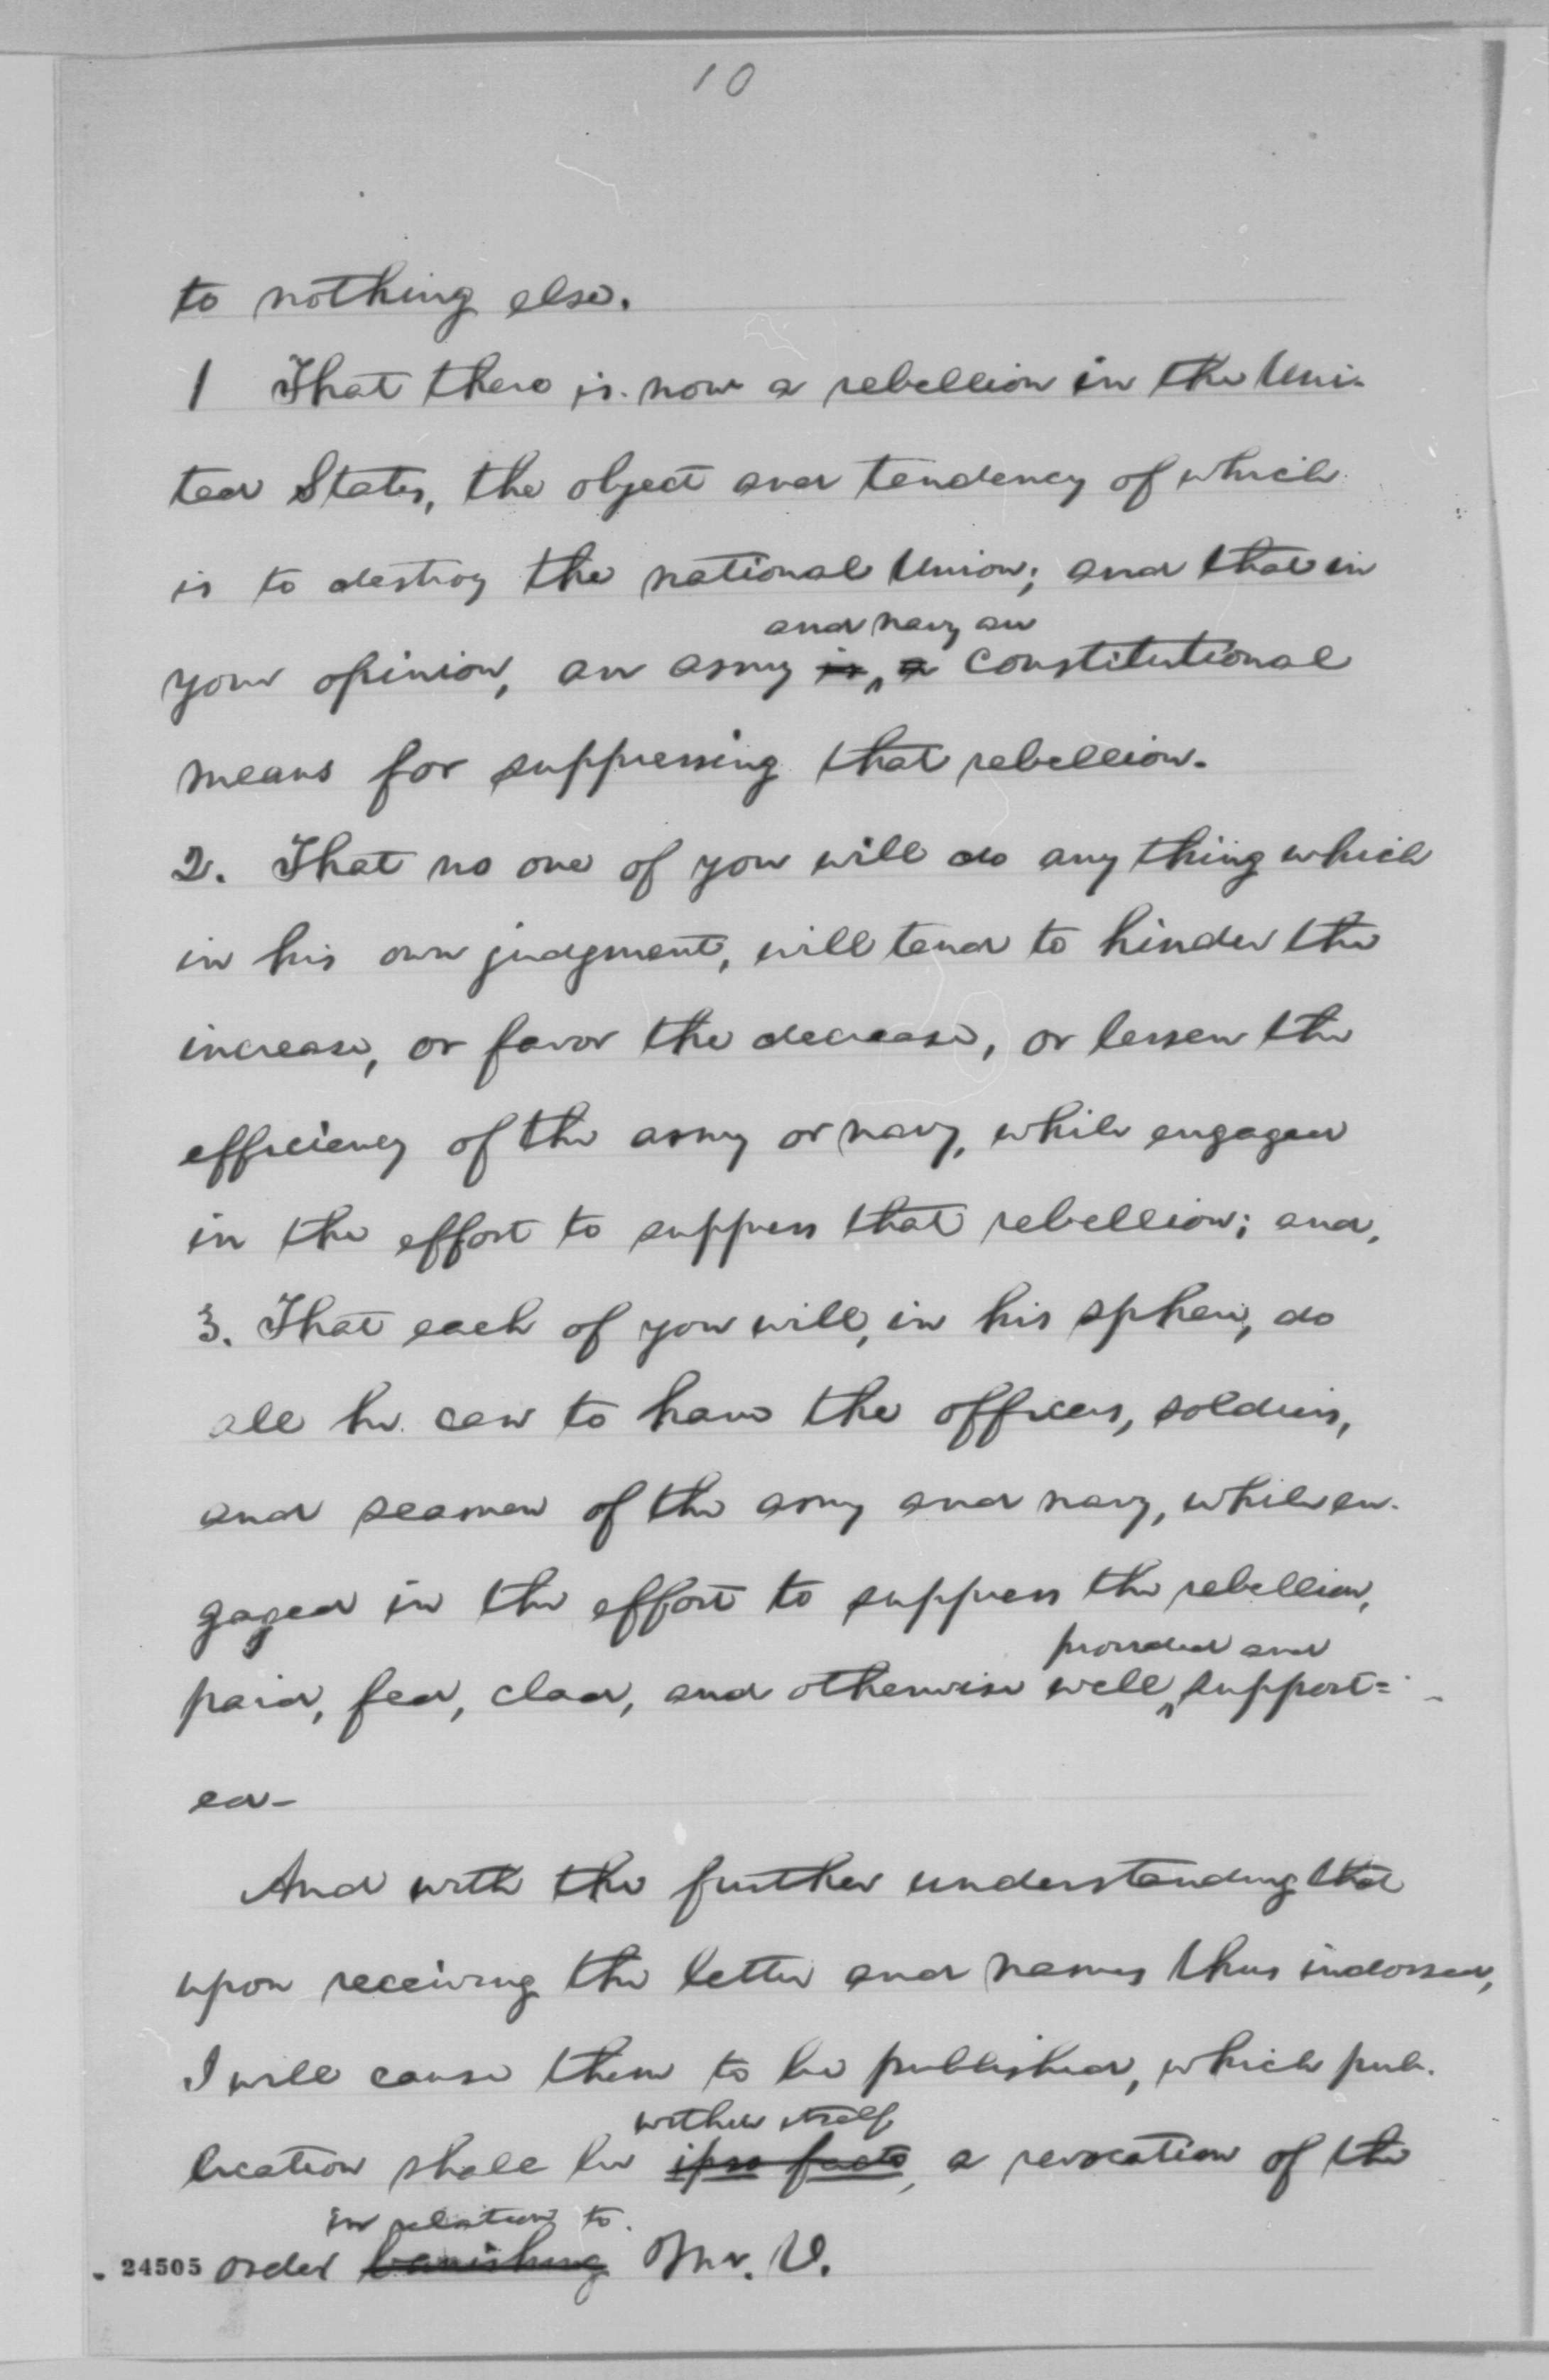 10
to nothing else.
1 That there is now a rebellion in the Uni-
ted States, the object and tendency of which
is to destroy the national Union; and that in
and navy are
your opinion, an army is a constitutional
means for suppressing that rebellion.
2. That no one of you will do any thing which
in his own judgment, will tend to hinder the
increase, or favor the decrease, or lessen the
efficiency of the army or navy, while engaged
in the effort to suppress that rebellion; and,
3. That each of you will, in his sphere, do
all he can to have the officers, soldiers,
and seamen of the army and navy, while en-
gaged in the effort to suppress the rebellion,
provided and
paid, fed, clad, and otherwise well support=
ed-
And with the further understanding that
upon receiving the letter and names thus indorsed,
I will cause them to be published, which pub-
within itself
lication shall be ipso facto, a revocation of the
in relation to
24505 order banishing Mr. V.